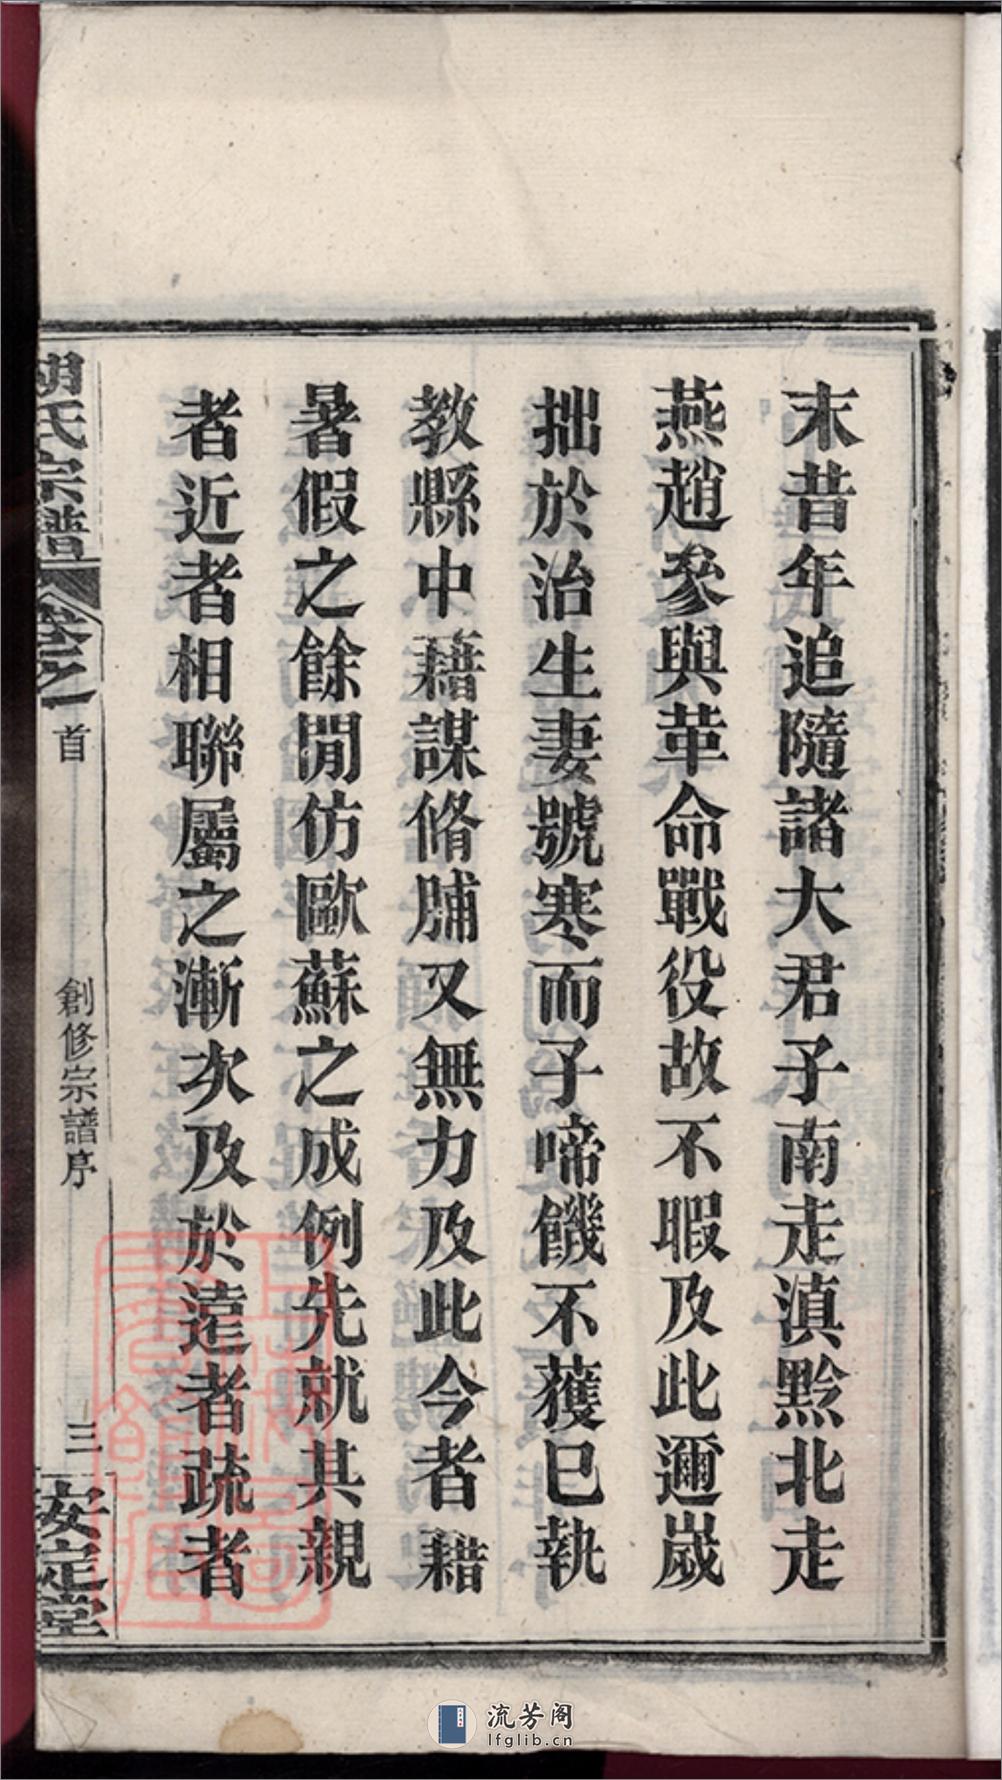 末昔年追隨諸大君子南走滇黔北走
燕趙參與革命戰役故不暇及此邇嵗
拙於治生妻號寒而子啼饑不獲巳執
教縣中藉謀脩脯又無力及此今者藉
暑假之餘閒仿歐蘇之成例先就其親
者近者相聯屬之漸次及於遠者疏者
胡氏宗譜
卷之
首
創修宗譜序
三
安定堂
流芳阁
lfglib.cn